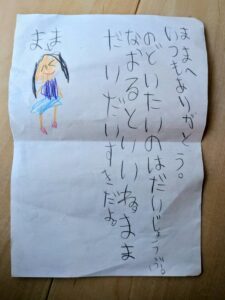 ままへ
いつもありがとう。
のどいたいのはだいじょうぶ。
なおるといいねまま
だいだいすきだよ。
まま